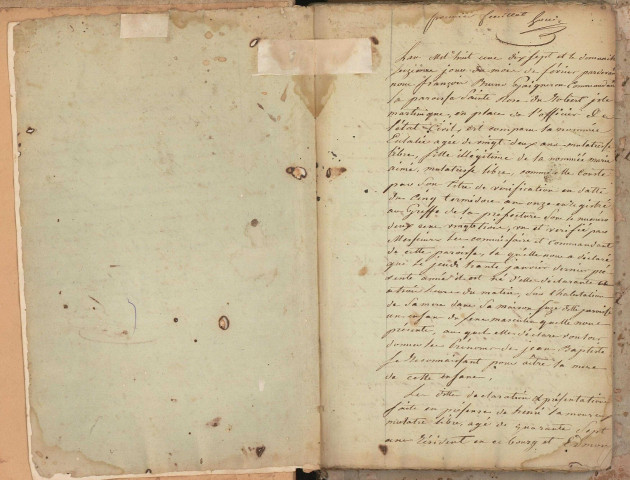 premier feuillet
L'an mil huit cent dix sept et le dimanche
seizième jour du mois de février pardevant
nous françois Bruno Gaigneron Commandant
la paroisse Sainte Rose du Robert isle
martinique, en place de l'officier de
l'état Civil, est comparu la nommée
Eulalie agée de vingt deux ans mulatresse
libre, fille illégitime de la nommée marie
aimé, mulatresse libre, comme elle Conste
par Son titre de vérification en datte
du Cinq termidore an onze enregistré
au Greffe de la préfecture Sous le numéro
deux cent vingt trois, vu et vérifié par
Messieurs les commissaire et commandant
de cette paroisse, la quelle nous a déclaré
que le jeudi trente janvier dernier pré
sente année il est né d'elle déclarante
a trois heures du matin, Sur l'habitation
de dans Sa maison Susditte paroisse
un enfan de sexe masculin quelle nous
présente, au quel elle déclare vouloir
donner les Prénoms de jean Baptiste
Se Reconnaissant pour être la mère
de cette enfant.
Les ditte déclaration et présentation
faite en présence de henri
mulatre libre, agé de quarante Sept
ans Résident en ce bourg et